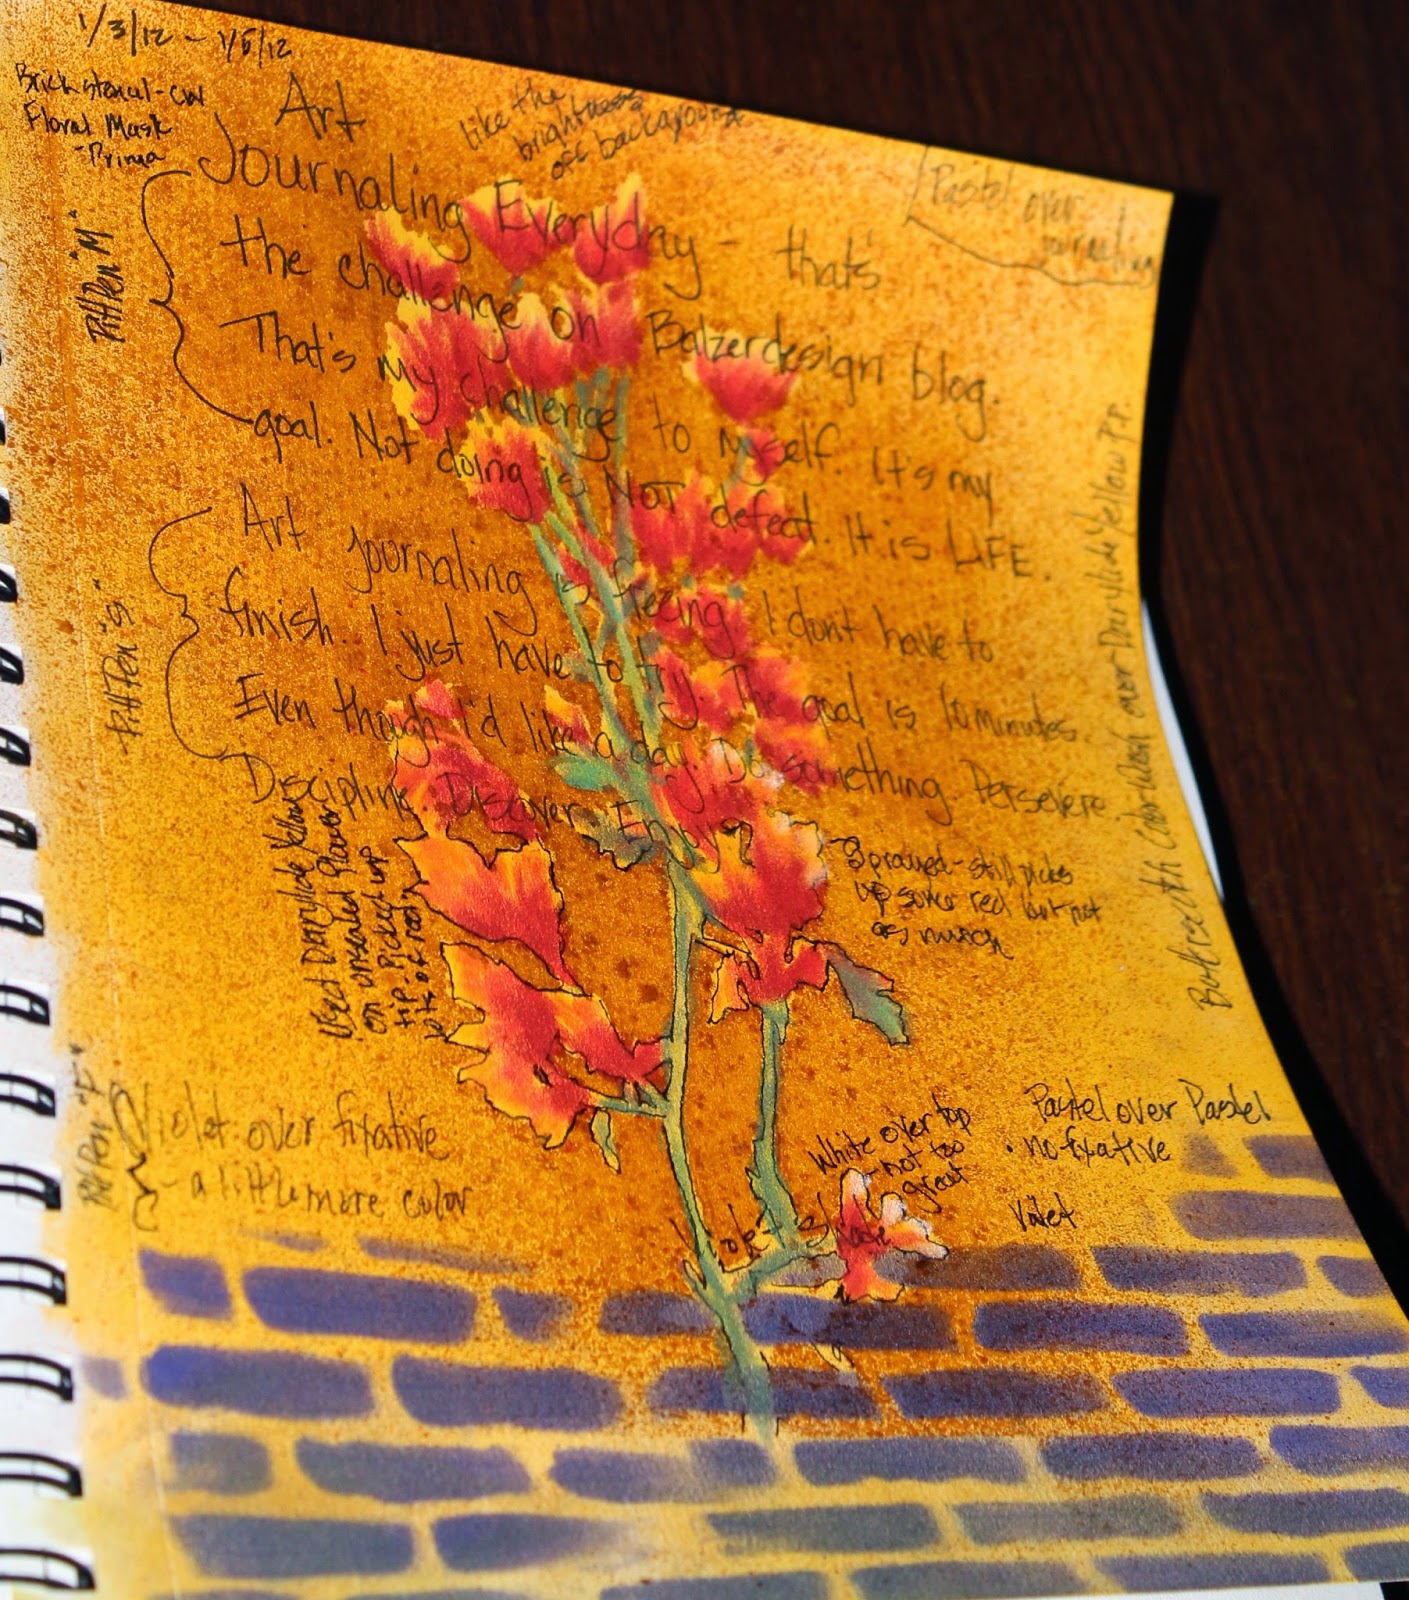 1/3/12 - 1/5/12
Brick stencil - CW
Floral Mask
- Prima
Art
Journaling Everyday - that's
the challenge on Balzerdesign blog.
That's my challenge to myself. It's my
goal. Not doing is NOT defeat. It is LIFE.
Art journaling is freeing. I don't have to
finish. I just have to try. The goal is 10 minutes.
Even though I'd like a day. Do something. Persevere.
Discipline. Discover. Enjoy
like the
brightness
off background
Pastel over
journaling
Pitt Pen "M"
Pitt Pen "S"
Pitt Pen "F"
Used Diarylide Yellow
on unsealed flower
tip. Picked up
lots of red
sprayed - still picks
up some red but not
as much
ColorWash over Diarylide Yellow P.P.
Violet over fixative
- a little more color
White over top
- not too
great
Pastel over Pastel
• no fixative
Violet
Violet shade